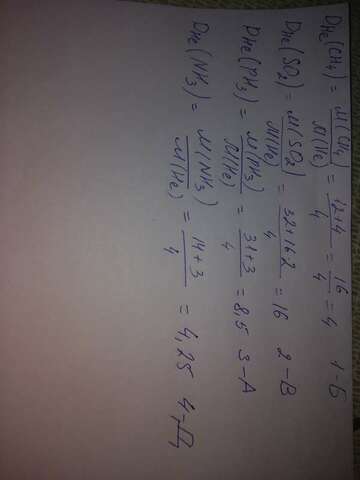 D_He(CH₄) = M(CH₄)/M(He) = 12+4/4 = 16/4 = 4 1-Б
D_He(SO₂) = M(SO₂)/M(He) = 32+16·2/4 = 16 2-В
D_He(PH₃) = M(PH₃)/M(He) = 31+3/4 = 8,5 3-А
D_He(NH₃) = M(NH₃)/M(He) = 14+3/4 = 4,25 4-Д